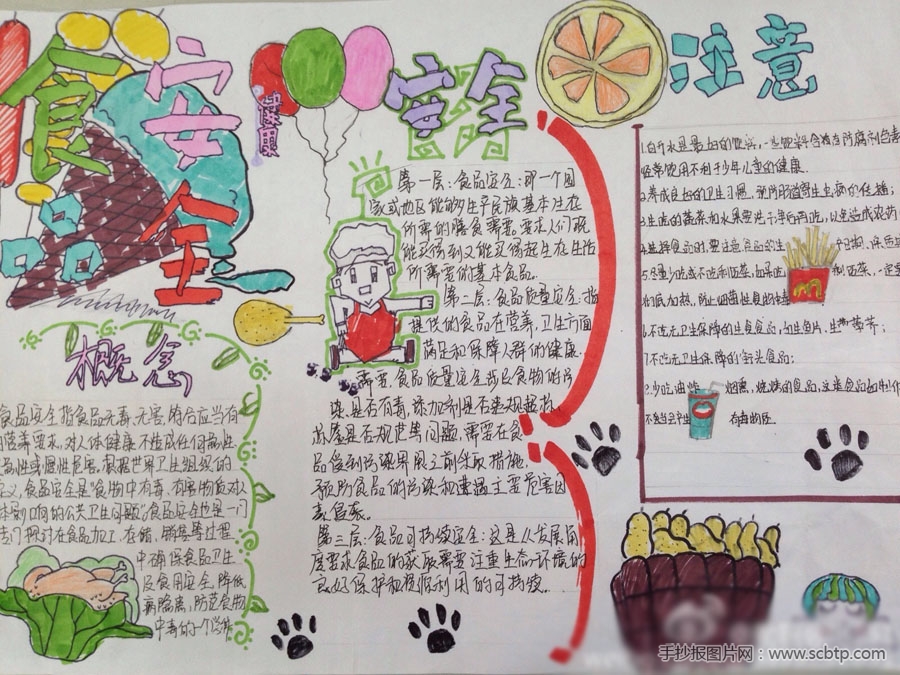 食
安
全
概念
食品安全指食品无毒、无害,符合应当有
营养要求,对人体健康不造成任何急性
急性或慢性危害。根据世界卫生组织的
定义,食品安全是"食物中有毒、有害物质对人
体影响的公共卫生问题"。食品安全也是一门
专门探讨在食品加工、存储、销售等过程
中确保食品卫生
及食用安全,降低
病隐患,防范食物
中毒的一个
安全
第一层:食品安全:即一个国
家或地区能够生产民族基本生存
所需的膳食需要。要求人们既
能买得到又能买得起生存生活
所需要的基本食品。
第二层:食品质量安全:指
提供的食品在营养,卫生方面
满足和保障人群的健康
需要,食品质量安全涉及食物的污
染、是否有毒,添加剂是否违规超标、
标签是否规范等问题,需要在食
品受到污染界限之前采取措施,
预防食品的污染和遭遇主要危害因
素侵袭。
第三层:食品可持续安全:这是从发展角
度要求食品的获取需要注重生态环境的
良好保护和资源利用的可持续。
注意
1.白开水是最好的饮料,一些饮料含有防腐剂色素
经常饮用不利于少年儿童的健康.
2.养成良好的卫生习惯,预防肠道寄生虫病的传播;
3.生吃的蔬菜和水果要洗干净后再吃,以免造成农药
4.选择食品时,要注意食品的生
5.尽量少吃或不吃剩饭菜,如果吃 剩饭菜,一定
彻底加热,防止细菌性食物中毒
6.不吃无卫生保障的生食食品,如生鱼片,生
7.不吃无卫生保障的街头食品;
少吃油炸 烟熏,烧烤的食品,这类食品如制作
手抄报图片网:www.scbtp.com